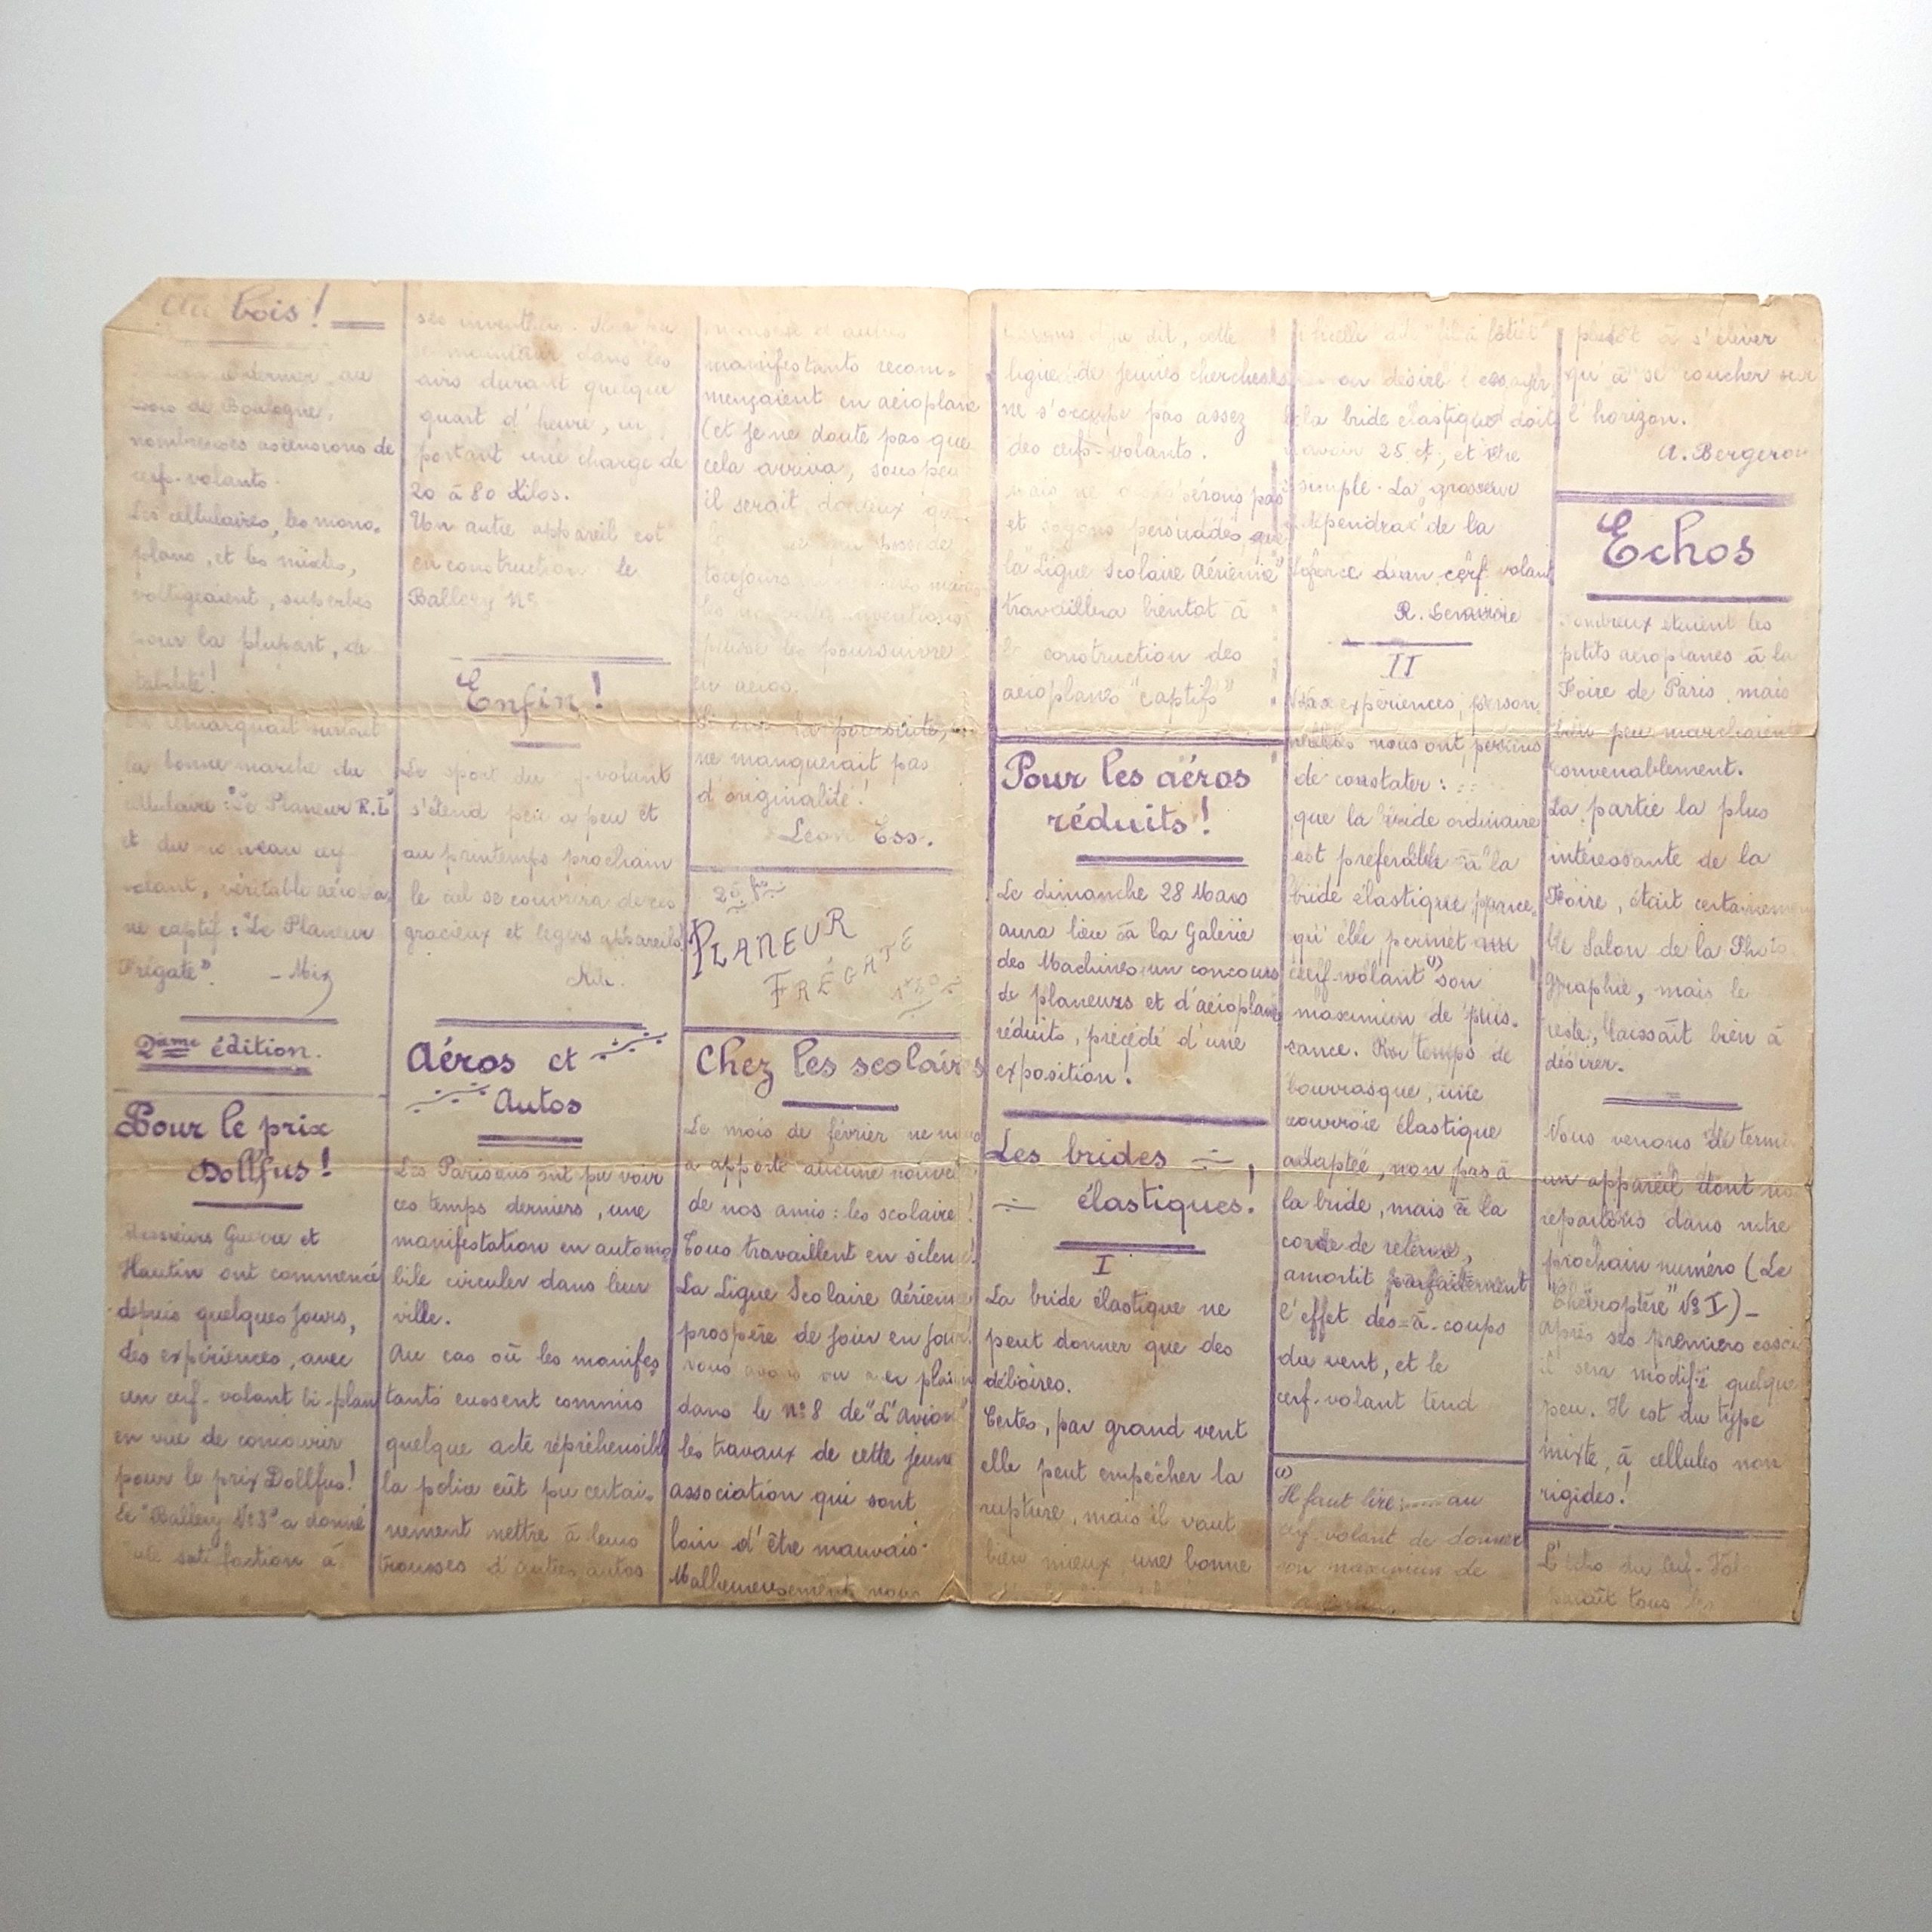 Au bois!
au
bois de Boulogne,
nombreuses ascensions de
cerfs-volants.
Les cellulaires, les mono-
plans, et les mixtes,
voltigeaient, superbes
pour la plupart, de
remarquait surtout
la bonne marche du
cellulaire: "Le Planeur R.L"
et du nouveau cerf
volant, véritable
ne captif: "Le Planeur
Frégate".
2ème édition.
Pour le prix
Dollfus!
Messieurs Guerre et
Hautin ont commencé
depuis quelques jours,
des expériences, avec
un cerf-volant bi-plan
en vue de concourir
pour le prix Dollfus!
Le "Ballery No 3" a donné
satisfaction à
airs durant quelque
quart d'heure,
portant une charge de
20 à 80 kilos.
Un autre appareil est
en construction le
Ballery No
Enfin!
Le sport du volant
s'étend peu à peu et
au printemps prochain
le ciel se couvrira de ces
gracieux et légers appareils.
Aéros et
Autos
Les Parisiens ont pu voir
ces temps derniers, une
manifestation en automo
bile circuler dans leur
ville.
Au cas où les manifes
tants eussent commis
quelque acte répréhensible
la police eût pu certai-
nement mettre à leurs
trousses d'autres autos
et autres
manifestants recom-
mençaient en aéroplane
(et je ne doute pas que
cela arriva, sous peu
il serait
toujours
les inventions
puisse les poursuivre
en aéros.
poursuite,
ne manquerait pas
d'originalité!
Léon Ess.
PLANEUR
FRÉGATE
Chez les scolaires
Le mois de février ne nous
a apporté aucune
de nos amis: les scolaires!
Tous travaillent en silence!
La Ligue Scolaire Aérienne
prospère de jour en jour!
dans le No 8 de "L'Avion"
les travaux de cette jeune
association qui sont
loin d'être mauvais.
Malheureusement nous
dit, cette
ligue de jeunes chercheurs
ne s'occupe pas assez
des cerfs-volants.
mais ne pas
et soyons persuadés, que
la "Ligue Scolaire Aérienne"
travaillera bientot à
la construction des
aéroplanes "captifs"
Pour les aéros
réduits!
Le dimanche 28 Mars
aura lieu à la Galerie
des Machines un concours
de planeurs et d'aéroplanes
réduits, précédé d'une
exposition!
Les brides
élastiques!
I
La bride élastique ne
peut donner que des
déboires.
Certes, par grand vent
elle peut empêcher la
rupture, mais il vaut
bien mieux une bonne
on désire l'essayer,
la bride élastique doit
avoir 25 et, et être
souple. La grosseur
dépendra de la
force d'un cerf-volant
II
expériences, person-
nelles nous ont permis
de constater:
que la bride ordinaire
est préférable à la
bride élastique parce-
qu'elle permet au
cerf-volant (1) son
maximum de puis-
sance. Par temps de
bourrasque, une
courroie élastique
adaptée, non pas à
la bride, mais à la
corde de retenue,
amortit parfaitement
l'effet des à-coups
du vent, et le
cerf-volant tend
(1)
Il faut lire: au
cerf-volant de donner
son maximum de
plutôt à s'élever
qu'à se coucher sur
l'horizon.
A. Bergeron
Echos
Nombreux étaient les
petits aéroplanes à la
Foire de Paris, mais
bien peu marchaient
convenablement.
La partie la plus
intéressante de la
Foire, était certainement
le Salon de la Photo-
graphie, mais le
reste, laissait bien à
désirer.
Nous venons de termi
un appareil dont
reparlons dans notre
prochain numéro (Le
"Cheiroptère" No I)-
Après ses premiers essais
il sera modifié quelque
peu. Il est du type
mixte, à cellules non
rigides!
L'Echo du Cerf-Vol
paraît tous les